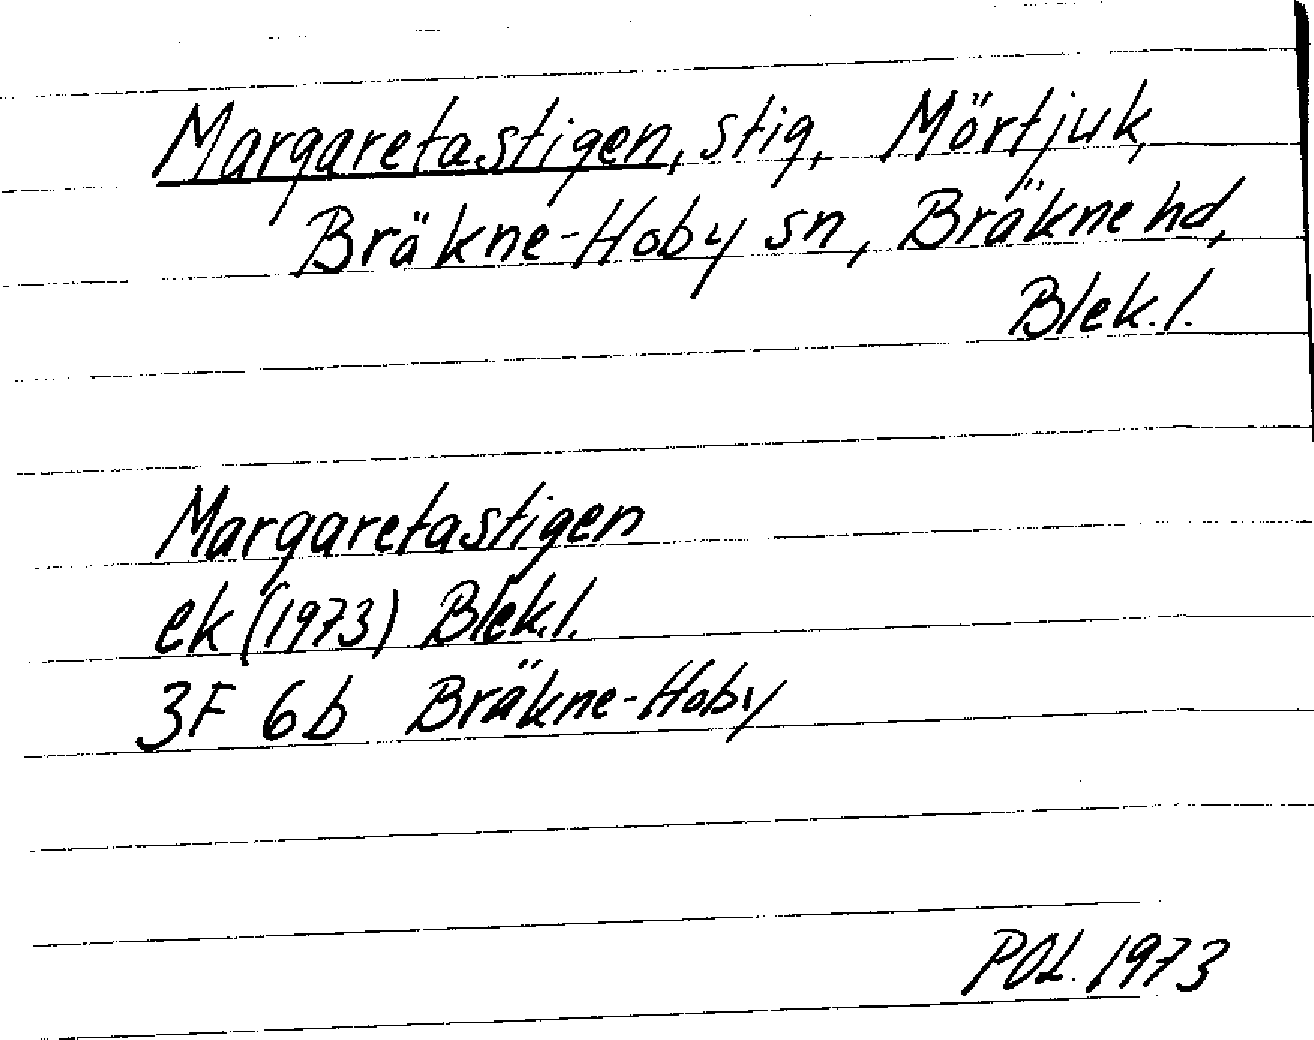 Margaretastigen, stig, Mörtjuk,
Bräkne-Hoby sn, Bräkne hd,
Blek. l.
Margaretastigen
ek (1973) Blek. l.
3F 6b Bräkne-Hoby
POL. 1973